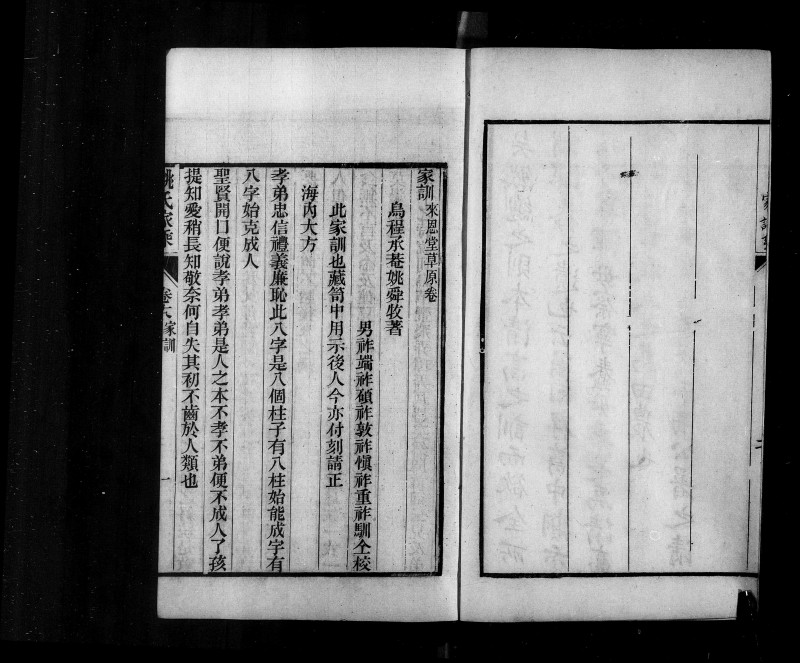 家訓來恩堂草原卷
烏程承菴姚舜牧著
男祚端祚碩祚敦祚愼祚重祚馴仝校
此家訓也藏笥中用示後人今亦付刻請正
海內大方
孝弟忠信禮義廉恥此八字是八個柱子有八柱始能成宇有
八字始克成人
聖賢開口便說孝弟孝弟是人之本不孝不弟便不成人了孩
提知愛稍長知敬奈何自失其初不齒於人類也
姚氏家乘
卷六家訓
一